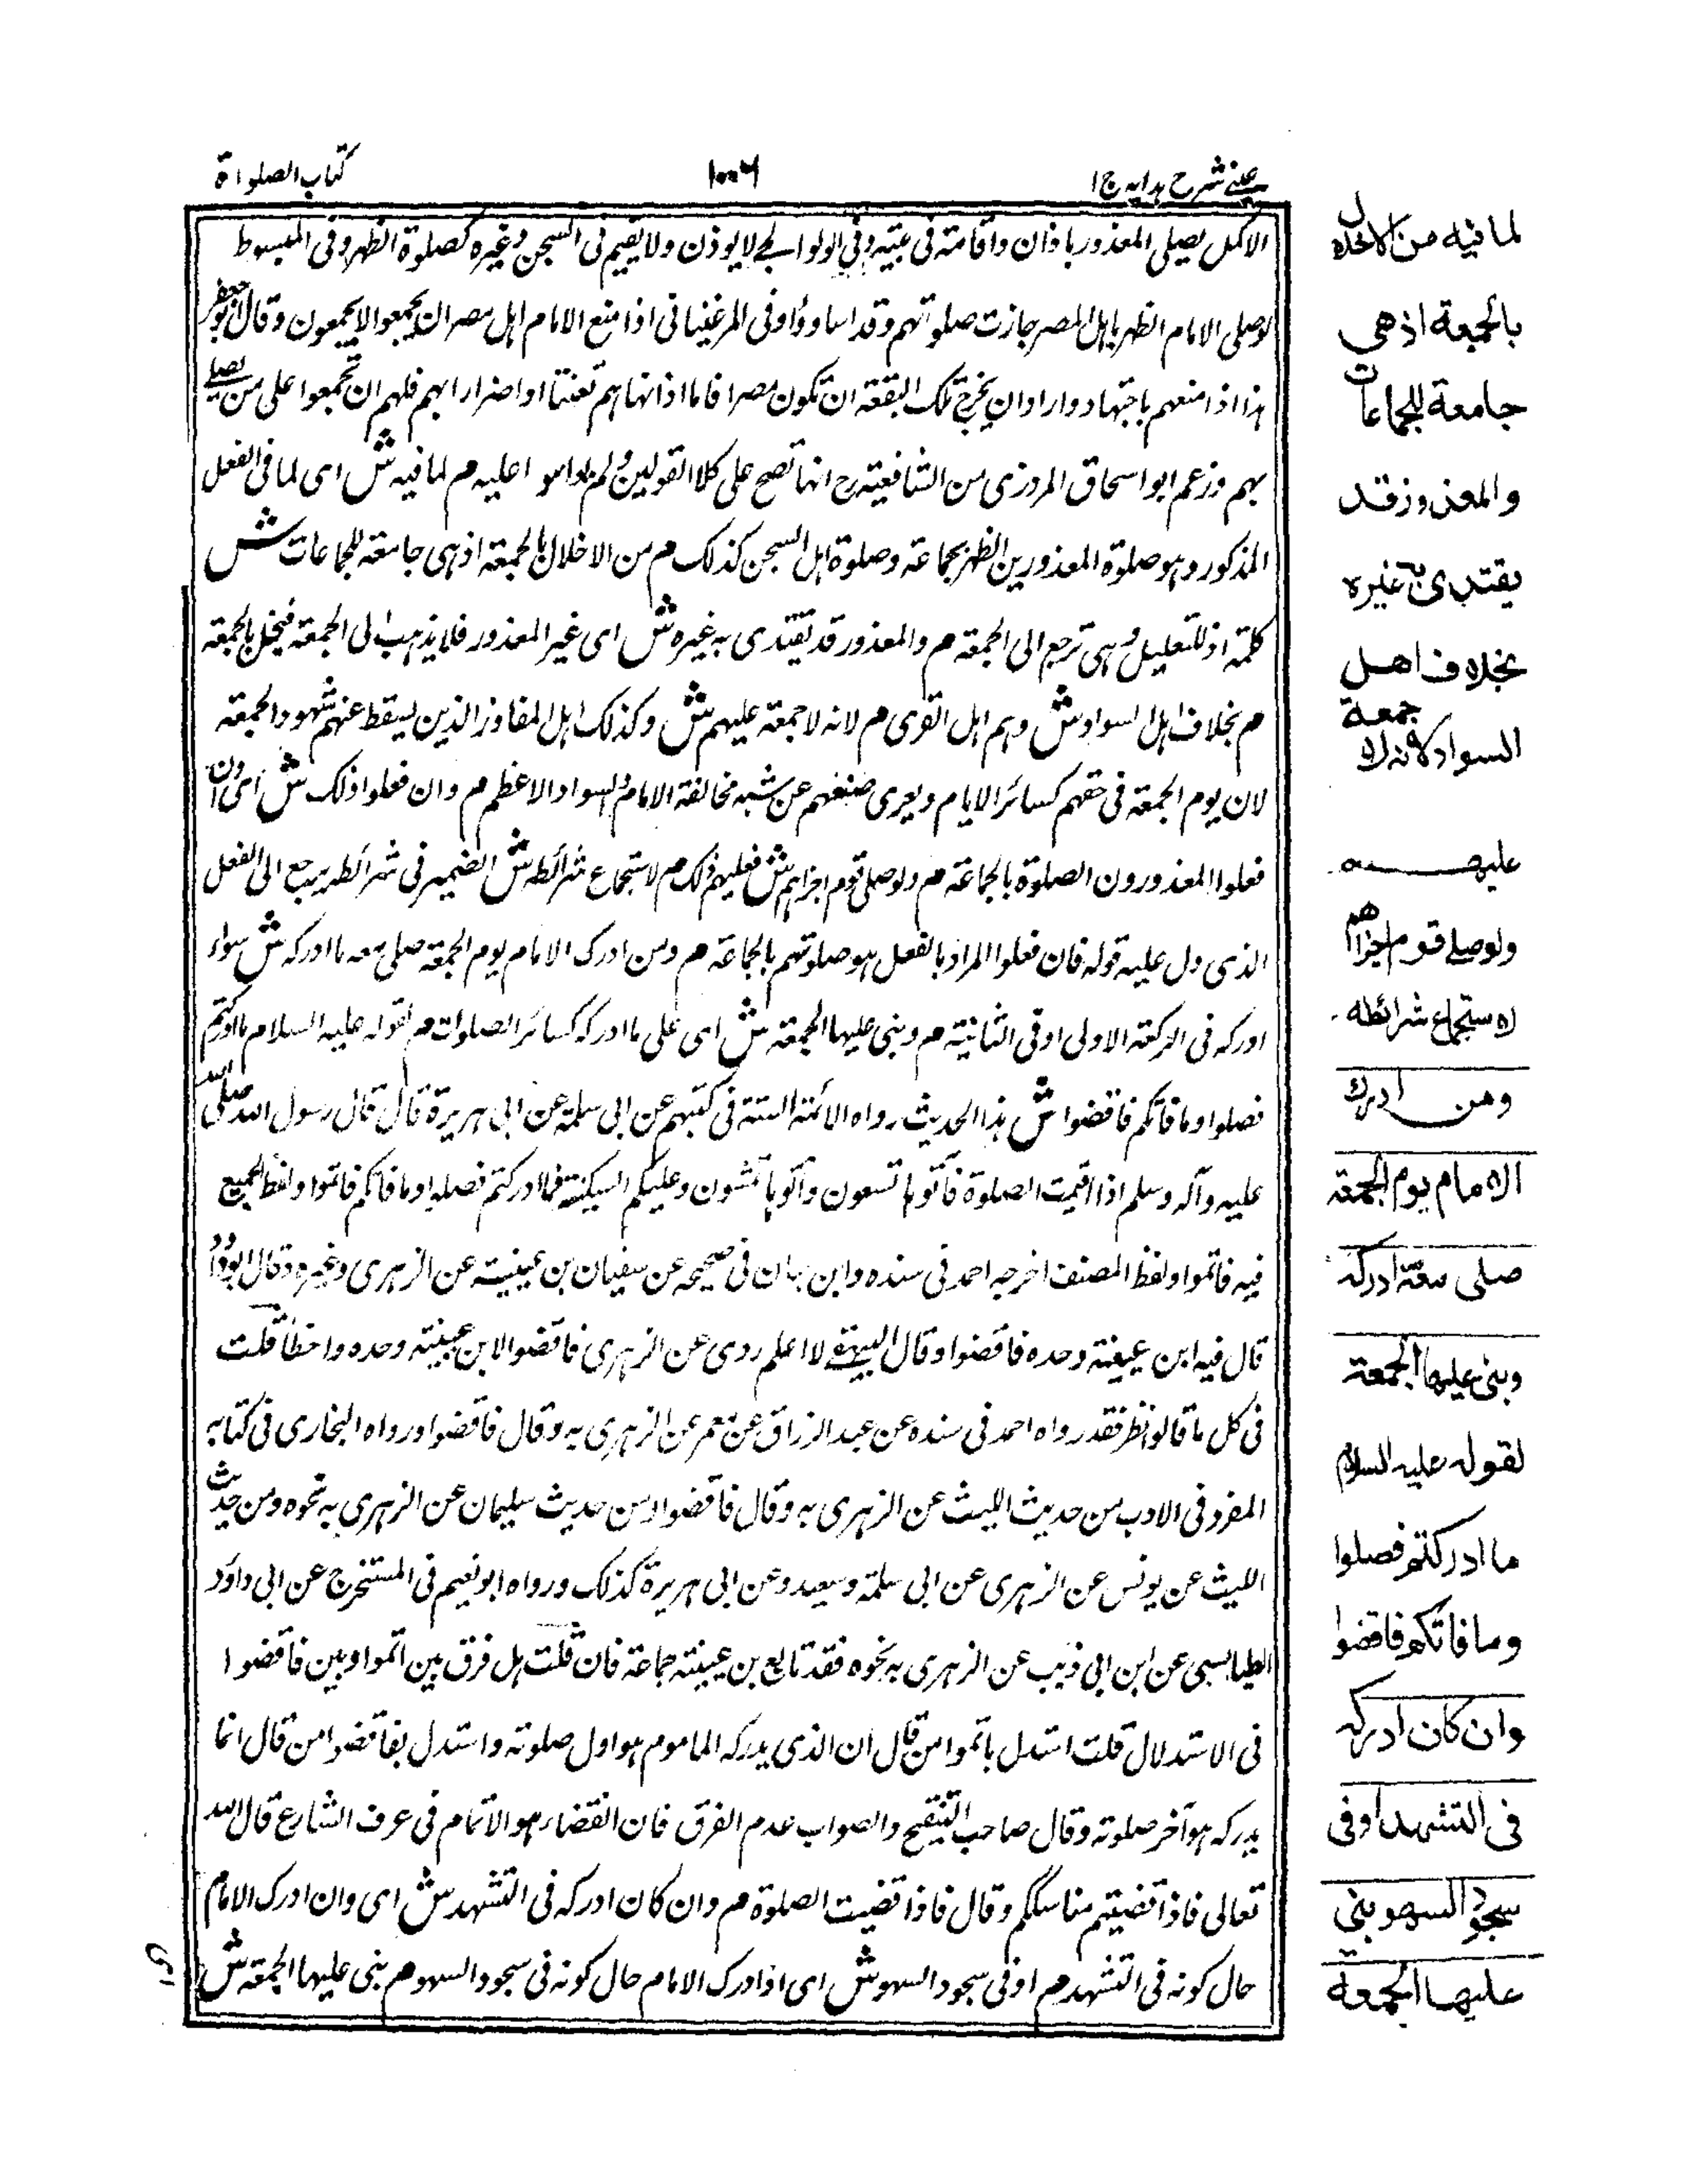 عینے شرح ہدایہ ج ۱
۱۰۰۶
کتاب الصلواة
الاکمل یصلی المعذور باذان واقامتہ فی بیتہ وفی الولوالجے لایوذن ولایقیم فی السجن وغیرہ کصلوة الظہر وفی المبسوط
لوصلی الامام الظہر باہل المصر جازت صلوتہم وقد اساوؤا وفی المرغینانی اذا منع الامام اہل مصر ان یجمعوا لایجمعون وقال ابوجعفر
ہذا اذا منعہم باجتہاد واراد ان یخرج تلک البقعة ان تکون مصرا فاما اذا نہاہم تعنتا او اضرارا بہم فلہم ان تجمعوا علی من یصلے
بہم وزعم ابو اسحاق المروزی من الشافعیتہ رح انہا تصح علی کلا القولین ولم اعلیہ م لما فیہ ش ای لما فی الفعل
المذکور وہو صلوة المعذورین الظہر بجماعة وصلوة اہل السجن کذلک م من الاخلال بالجمعتہ اذ ہی جامعتہ للجماعات ش
کلمتہ اذ للتعلیل وہی ترجع الی الجمعتہ م والمعذور قد یقتدی بہ غیرہ ش ای غیر المعذور فلا یذہب الی الجمعتہ فیخل بالجمعتہ
م بخلاف اہل السواد ش وہم اہل القری م لانہ لاجمعتہ علیہم ش وکذلک اہل المفاوز الذین یسقط عنہم شہود الجمعتہ
لان یوم الجمعتہ فی حقہم کسائر الایام ویعری صنعہم عن شبہ مخالفة الامام والسواد الاعظم م وان فعلوا ذلک ش ای وان
فعلوا المعذورون الصلوة بالجماعة م ولو صلی قوم اجزاہم ش فعلہم ذلک م لاستجماع شرائطہ ش الضمیر فی شرائطہ یرجع الی الفعل
الذی دل علیہ قولہ فان فعلوا المراد بالفعل ہو صلوتہم بالجماعة م ومن ادرک الامام یوم الجمعتہ صلی معہ ما ادرکہ ش سواء
ادرکہ فی الرکعتہ الاولی اوفی الثانیتہ م وبنی علیہا الجمعتہ ش ای علی ما ادرکہ کسائر الصلوات م لقولہ علیہ السلام ما ادرکتم
فصلوا وما فاتکم فاقضوا ش ہذا الحدیث رواہ الائمتہ الستتہ فی کتبہم عن ابی سلمتہ عن ابی ہریرة قال قال رسول اللہ صلی اللہ
علیہ وآلہ وسلم اذا اقیمت الصلوة فلا تاتوہا تسعون وأتوہا تمشون وعلیکم السکینتہ فما ادرکتم فصلوا وما فاتکم فاتموا ولفظ الجمیع
فیہ فاتموا ولفظ المصنف اخرجہ احمد فی سندہ وابن حبان فی صحیحہ عن سفیان بن عیینیتہ عن الزہری وغیرہ وقال ابوداؤد
قال فیہ ابن عیینتہ وحدہ فاقضوا وقال البیہقے لا اعلم روی عن الزہری فاقضوا الا ابن عیینتہ وحدہ واخطأ قلت
فی کل ما قالو نظر فقد رواہ احمد فی سندہ عن عبد الرزاق عن معمر عن الزہری بہ وقال فاقضوا ورواہ البخاری فی کتابہ
المفرد فی الادب من حدیث اللیث عن الزہری بہ وقال فاقضوا ومن حدیث سلیمان عن الزہری بہ نحوہ ومن حدیث
اللیث عن یونس عن الزہری عن ابی سلمتہ وسعید وعن ابی ہریرة کذلک ورواہ ابو نعیم فی المستخرج عن ابی داؤد
الطیالسی عن ابن ابی ذیب عن الزہری بہ نحوہ فقد تابع بن عیینتہ جماعة فان قلت ہل فرق بین اتموا وبین فاقضوا
فی الاستدلال قلت استدل باتموا من قال ان الذی یدرکہ الماموم ہو اول صلوتہ واستدل بفاقضوا من قال انما
یدرکہ ہو آخر صلوتہ وقال صاحب التنقیح والصواب عدم الفرق فان القضاء ہو الاتمام فی عرف الشارع قال اللہ
تعالی فاذا قضیتم مناسککم وقال فاذا قضیت الصلوة م وان کان ادرکہ فی التشہد ش ای وان ادرک الامام
حال کونہ فی التشہد م اوفی سجود السہو ش ای اذا ادرک الامام حال کونہ فی سجود السہو م بنی علیہا الجمعتہ ش
ای
لما فیہ من الاخلال
بالجمعة اذ هی
جامعة للجماعات
والمعذور قد
یقتدی بہ غیرہ
بخلاف اهل
السواد لانہ لا جمعة
علیهم
ولو صلے قوم اجزاهم
لاستجماع شرائطہ
ومن ادرك
الامام یوم الجمعة
صلی معہ ما ادرکہ
وبنی علیها الجمعة
لقولہ علیہ السلام
ما ادرکتم فصلوا
وما فاتکم فاقضوا
وان کان ادرکہ
فی التشهد او فی
سجود السهو بنی
علیها الجمعة